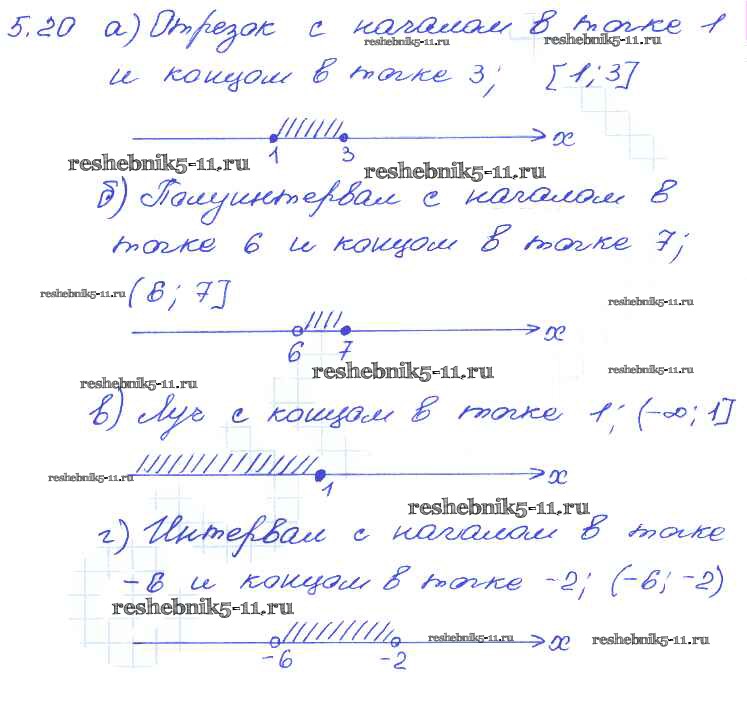 5.20 а) Отрезок с началом в точке 1
reshebnik5-11.ru reshebnik5-11.ru
и концом в точке 3; [1; 3]
x
1 3
reshebnik5-11.ru reshebnik5-11.ru
б) Полуинтервал с началом в
точке 6 и концом в точке 7;
reshebnik5-11.ru (6; 7] reshebnik5-11.ru
x
6 7
reshebnik5-11.ru reshebnik5-11.ru
reshebnik5-11.ru
в) Луч с концом в точке 1; (-∞; 1]
reshebnik5-11.ru x
1
reshebnik5-11.ru
г) Интервал с началом в точке
-6 и концом в точке -2; (-6; -2)
reshebnik5-11.ru
reshebnik5-11.ru x reshebnik5-11.ru
-6 -2